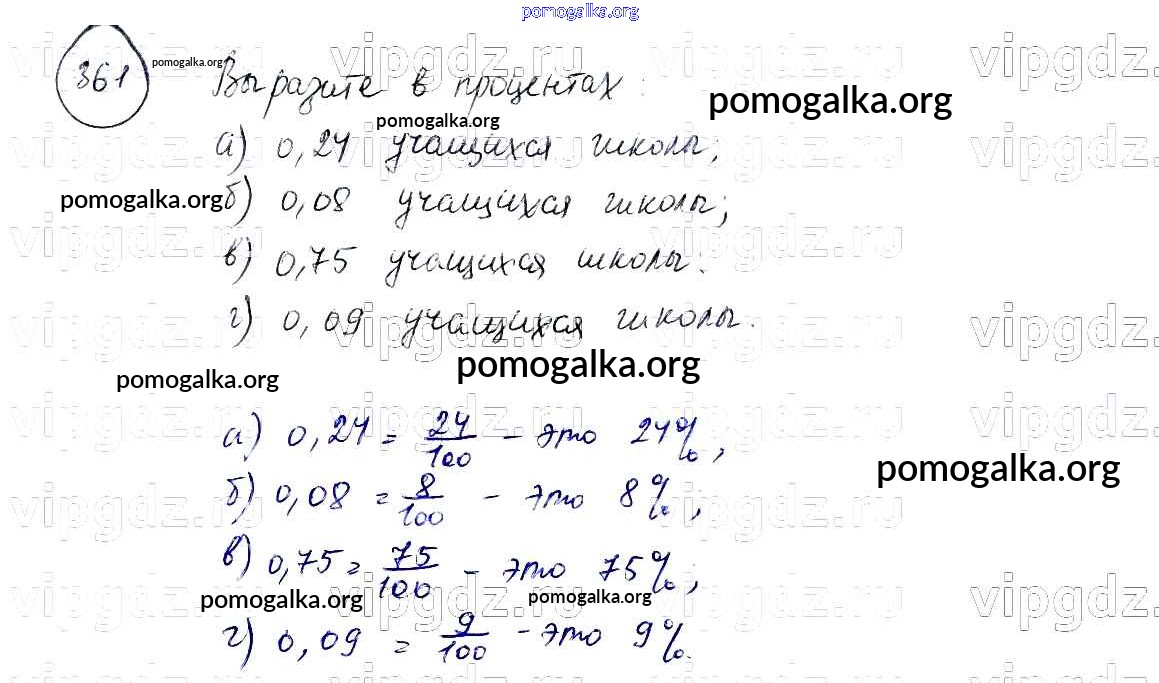 pomogalka.org
361 pomogalka.org Выразите в процентах: pomogalka.org
pomogalka.org
а) 0,24 учащихся школы;
pomogalka.org б) 0,08 учащихся школы;
в) 0,75 учащихся школы;
г) 0,09 учащихся школы.
pomogalka.org
pomogalka.org
а) 0,24 = 24/100 - это 24%,
pomogalka.org
б) 0,08 = 8/100 - это 8%,
в) 0,75 = 75/100 - это 75%;
pomogalka.org pomogalka.org
г) 0,09 = 9/100 - это 9%.
vipgdz.ru vipgdz.ru vipgdz.ru vipgdz.
vipgdz.ru vipgdz.ru vipgdz.ru vipgdz.
vipgdz.ru vipgdz.ru vipgdz.ru
vipgdz.ru vipgdz.ru vipgdz.ru vipgdz.
vipgdz.ru vipgdz.ru vipgdz.ru vipgdz.
vipgdz.ru vipgdz.ru vipgdz.ru
vipgdz.ru vipgdz.ru vipgdz.ru vipgdz.
vipgdz.ru vipgdz.ru vipgdz.ru vipgdz.